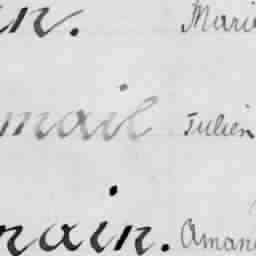 in. Mari
mail Julien
main. Aman